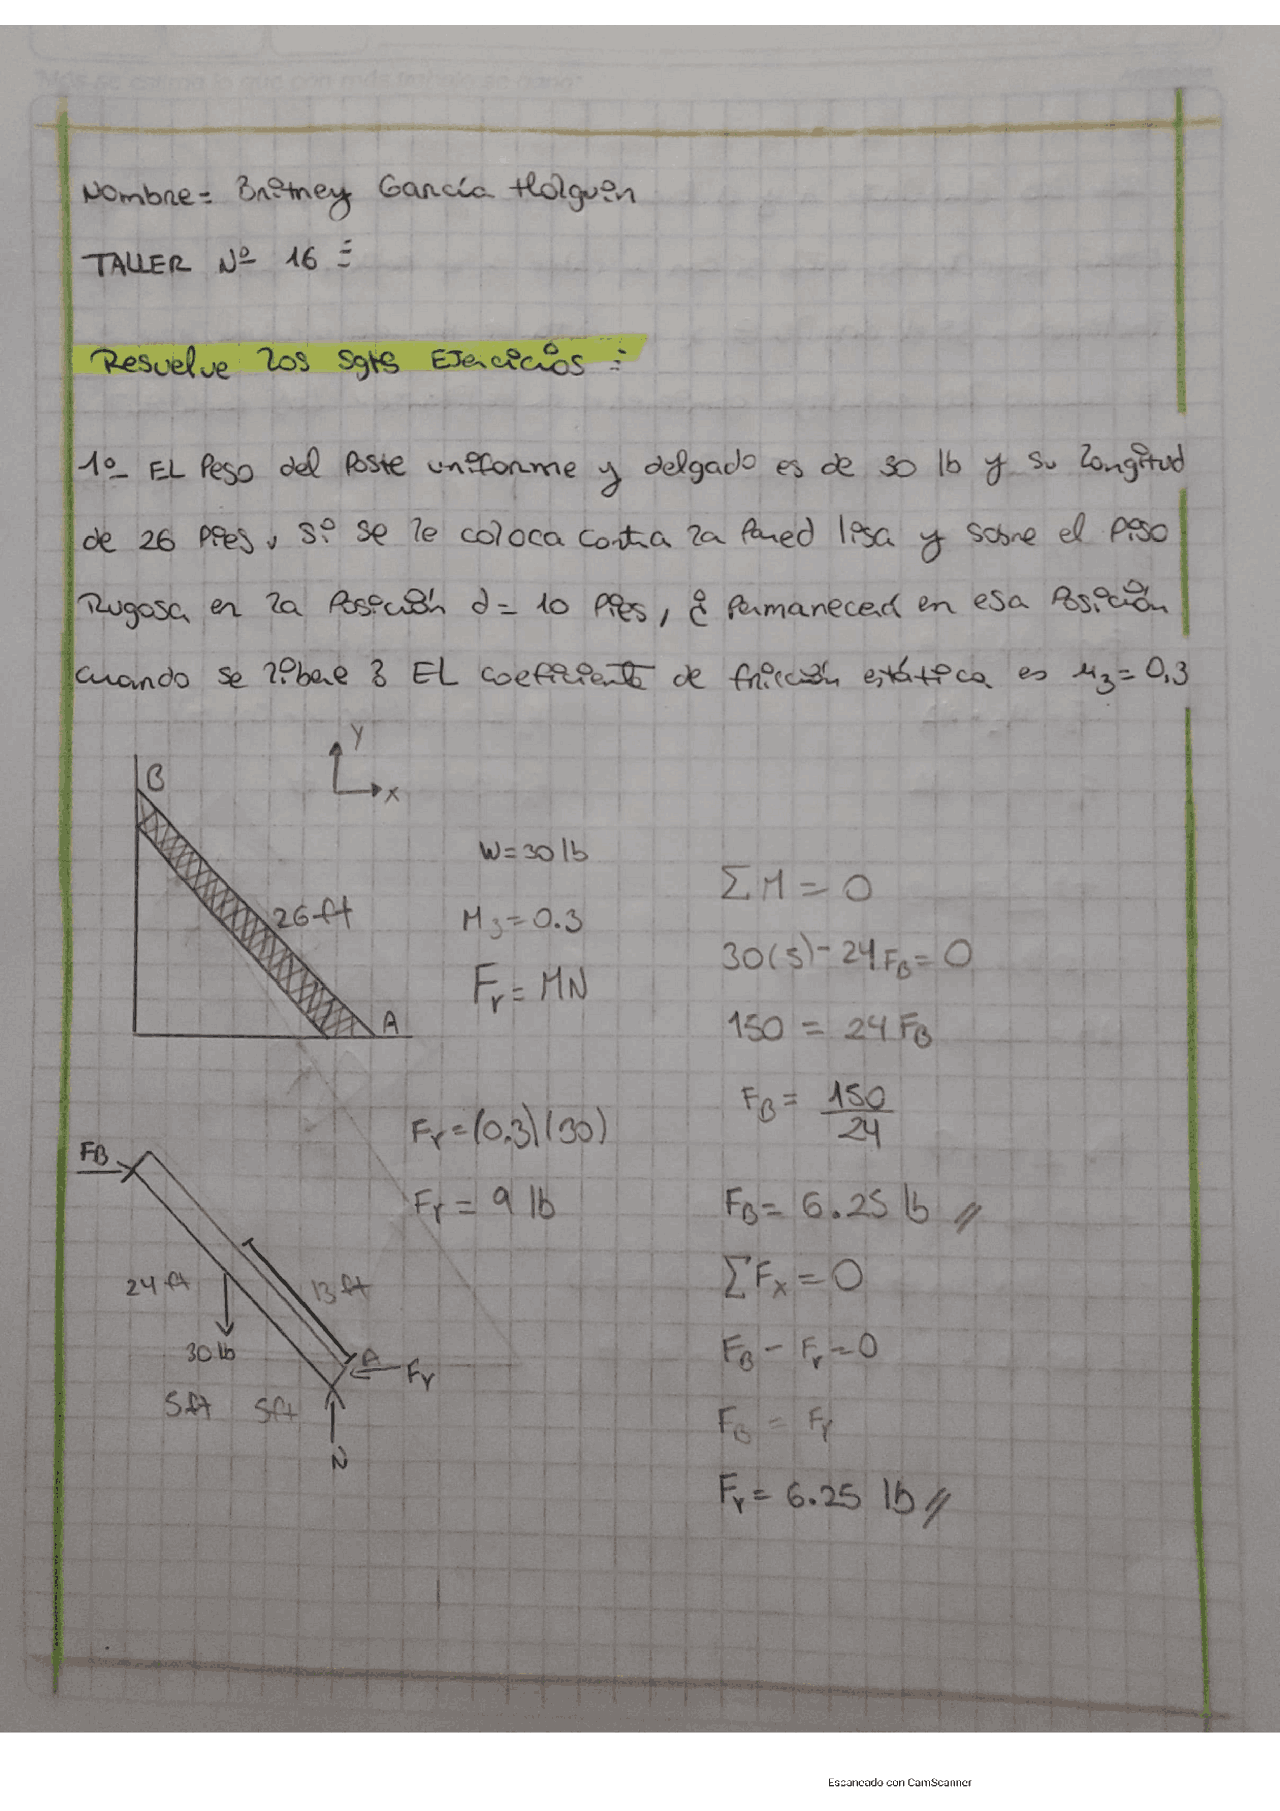 Nombre= Britney García Holguin
TALLER Nº 16 =
Resuelve los sgts Ejercicios :
1º_ EL Peso del Poste uniforme y delgado es de 30 lb y su longitud
de 26 Pies, Si se le coloca contra la Pared lisa y sobre el Piso
Rugosa en la Posición d= 10 Pies, ¿ Permanecerá en esa Posición
cuando se libere ? EL coeficiente de fricción estática es μ3= 0,3
Y
x
B
26 ft
A
W= 30 lb
M3= 0.3
Fr= MN
Fr=(0.3)(30)
Fr= 9 lb
FB
24 ft
13 ft
30 lb
A
Fr
5ft 5ft
N
ΣM = 0
30(5)- 24FB= 0
150 = 24 FB
FB= 150/24
FB= 6.25 lb //
ΣFx = 0
FB - Fr= 0
FB = Fr
Fr= 6.25 lb //
Escaneado con CamScanner